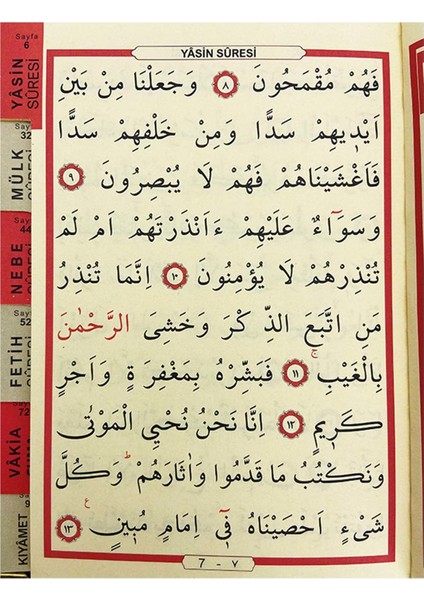 Sayfa
6
YÂSİN
SÛRESİ
32
MÜLK
SÛRESİ
44
NEBE
Sayfa
52
FETİH
72
VÂKIA
KIYÂMET
YÂSİN SÛRESİ
فَهُمْ مُقْمَحُونَ ٨ وَجَعَلْنَا مِنْ بَيْنِ
اَيْدٖيهِمْ سَدًّا وَمِنْ خَلْفِهِمْ سَدًّا
فَاَغْشَيْنَاهُمْ فَهُمْ لَا يُبْصِرُونَ ٩
وَسَوَٓاءٌ عَلَيْهِمْ ءَاَنْذَرْتَهُمْ اَمْ لَمْ
تُنْذِرْهُمْ لَا يُؤْمِنُونَ ١٠ اِنَّمَا تُنْذِرُ
مَنِ اتَّبَعَ الذِّكْرَ وَخَشِىَ الرَّحْمٰنَ
بِالْغَيْبِۚ ١١ فَبَشِّرْهُ بِمَغْفِرَةٍ وَاَجْرٍ
كَرٖيمٍ ١٢ اِنَّا نَحْنُ نُحْيِي الْمَوْتٰى
وَنَكْتُبُ مَا قَدَّمُوا وَاٰثَارَهُمْۜ وَكُلَّ
شَىْءٍ اَحْصَيْنَاهُ فٖٓى اِمَامٍ مُبٖينٍ ع ١٣
7 - ٧